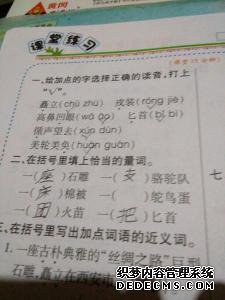 黄冈
课堂练习
(课堂15分钟)
一、给加点的字选择正确的读音，打上
“√”。
矗立(chù zhù) 戎装(róng jié)
高鼻凹眼(wā āo) 匕首(bǐ bì)
循声望去(xún dùn)
美轮美奂(huàn guān)
二、在括号里填恰当的量词。
一(座)石雕 一(支)骆驼队
一(床)棉被 一( )鸵鸟蛋
一(团)火苗 一(把)匕首
三、在括号里写出加点词语的近义词。
1.一座古朴典雅的“丝绸之路”巨型
石雕,矗立在西安市
七